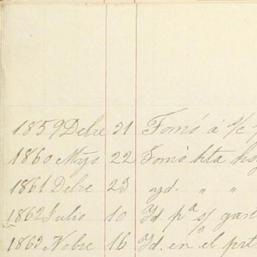 1859 Dcbre 21 Tomó á %c
1860 Myo 22 Tomó hta hoy
1861 Dcbre 23 yd. " "
1862 Julio 10 Yd pª s/
1863 Nobre 16 Yd. en el